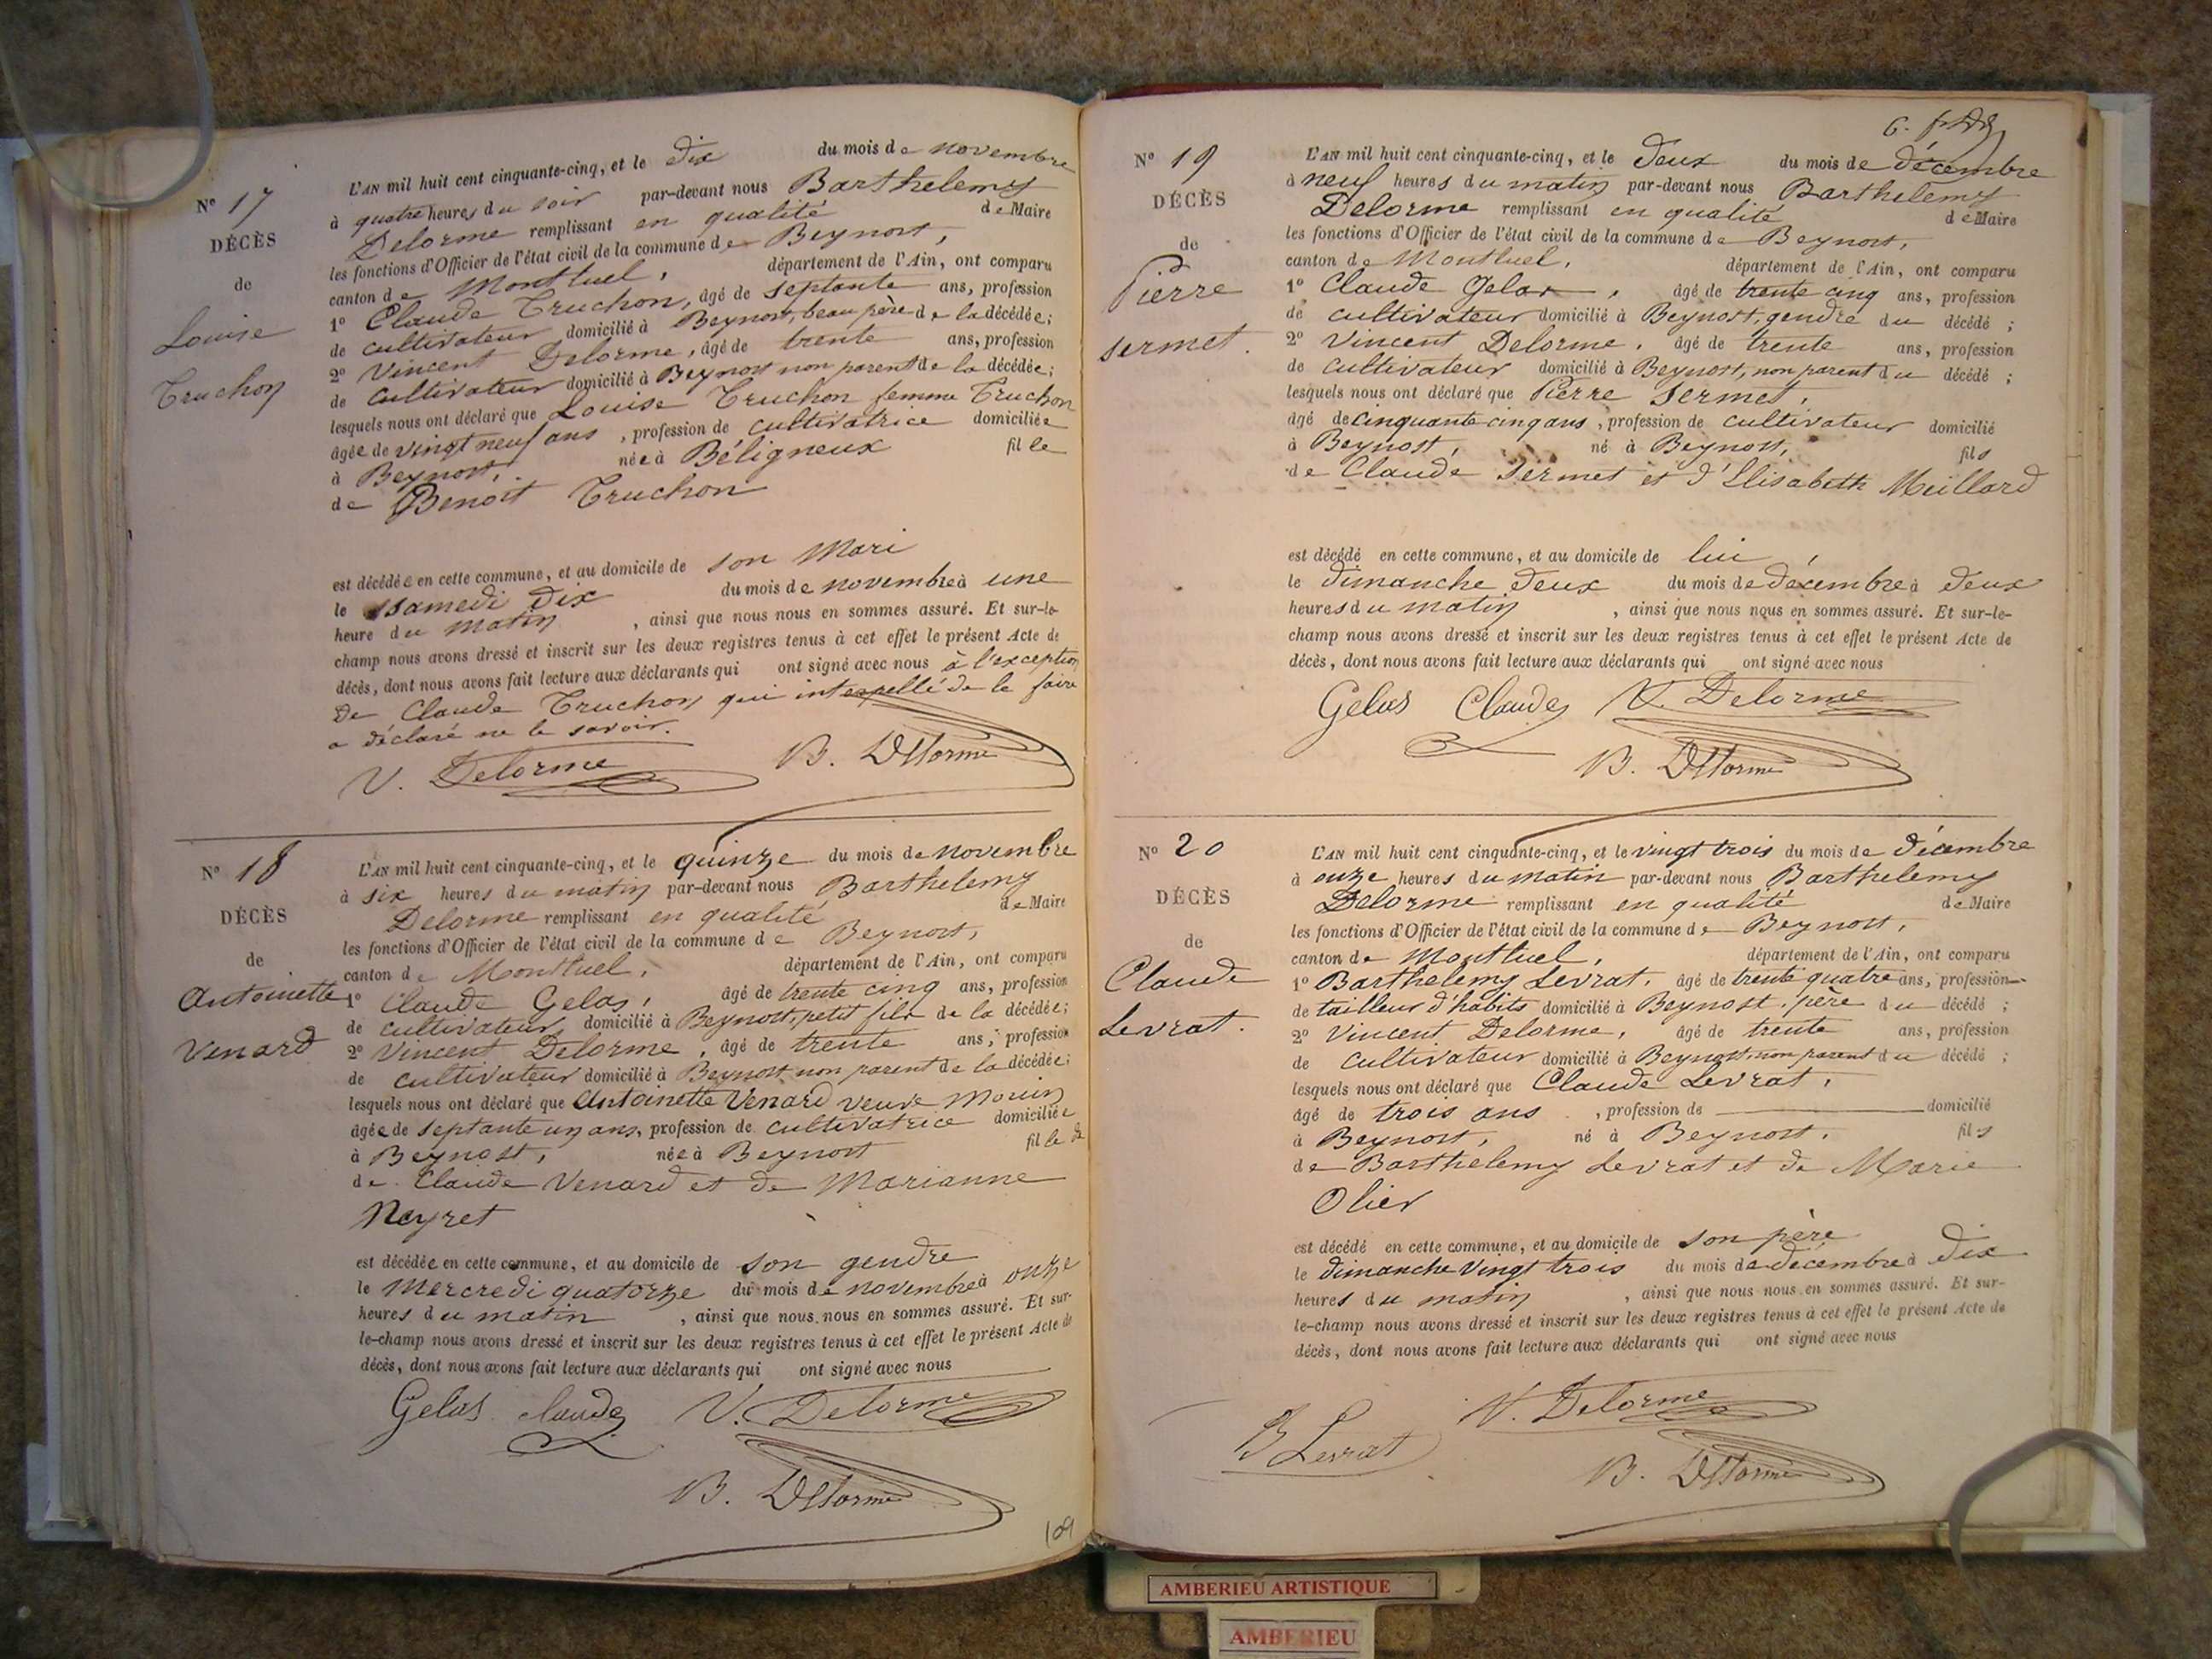 N° 17
DÉCÈS
de
Louise
Truchon
L'AN mil huit cent cinquante-cinq, et le dix du mois de novembre
à quatre heures du soir par-devant nous Barthelemy
Delorme remplissant en qualité de Maire
les fonctions d'Officier de l'état civil de la commune de Beynost,
canton de Montluel, département de l'Ain, ont comparu
1° Claude Truchon, âgé de septante ans, profession
de cultivateur domicilié à Beynost, beau père de la décédée;
2° Vincent Delorme, âgé de trente ans, profession
de cultivateur domicilié à Beynost non parent de la décédée;
lesquels nous ont déclaré que Louise Truchon femme Truchon
âgée de vingt neuf ans, profession de cultivatrice domiciliée
à Beynost, née à Béligneux fille
de Benoit Truchon
est décédée en cette commune, et au domicile de son Mari
le samedi dix du mois de novembre à une
heure du matin, ainsi que nous nous en sommes assuré. Et sur-le-
champ nous avons dressé et inscrit sur les deux registres tenus à cet effet le présent Acte de
décès, dont nous avons fait lecture aux déclarants qui ont signé avec nous à l'exception
de Claude Truchon qui interpellé de le faire
a déclaré ne le savoir.
V. Delorme B. Delorme
N° 18
DÉCÈS
de
Antoinette
Venard
L'AN mil huit cent cinquante-cinq, et le quinze du mois de novembre
à six heures du matin par-devant nous Barthelemy
Delorme remplissant en qualité de Maire
les fonctions d'Officier de l'état civil de la commune de Beynost,
canton de Montluel, département de l'Ain, ont comparu
1° Claude Gelas, âgé de trente cinq ans, profession
de cultivateur, domicilié à Beynost, petit fils de la décédée;
2° Vincent Delorme, âgé de trente ans, profession
de cultivateur domicilié à Beynost non parent de la décédée;
lesquels nous ont déclaré que Antoinette Venard veuve
âgée de septante un ans, profession de cultivatrice domiciliée
à Beynost, née à Beynost fille de
de Claude Venard et de Marianne
Neyret
est décédée en cette commune, et au domicile de son gendre
le Mercredi quatorze du mois de novembre à onze
heures du matin, ainsi que nous nous en sommes assuré. Et sur-
le-champ nous avons dressé et inscrit sur les deux registres tenus à cet effet le présent Acte de
décès, dont nous avons fait lecture aux déclarants qui ont signé avec nous
Gelas Claude V. Delorme
B. Delorme
109
N° 19
DÉCÈS
de
Pierre
Sermet.
L'AN mil huit cent cinquante-cinq, et le deux du mois de décembre
à neuf heures du matin par-devant nous Barthelemy
Delorme remplissant en qualité de Maire
les fonctions d'Officier de l'état civil de la commune de Beynost,
canton de Montluel, département de l'Ain, ont comparu
1° Claude Gelas, âgé de trente cinq ans, profession
de cultivateur domicilié à Beynost, gendre du décédé;
2° Vincent Delorme, âgé de trente ans, profession
de cultivateur domicilié à Beynost, non parent du décédé;
lesquels nous ont déclaré que Pierre Sermet,
âgé de cinquante cinq ans, profession de cultivateur domicilié
à Beynost, né à Beynost, fils
de Claude Sermet et d'Elisabeth Meillard
est décédé en cette commune, et au domicile de lui,
le dimanche deux du mois de décembre à deux
heures du matin, ainsi que nous nous en sommes assuré. Et sur-le-
champ nous avons dressé et inscrit sur les deux registres tenus à cet effet le présent Acte de
décès, dont nous avons fait lecture aux déclarants qui ont signé avec nous
Gelas Claude V. Delorme
B. Delorme
N° 20
DÉCÈS
de
Claude
Levrat.
L'AN mil huit cent cinquante-cinq, et le vingt trois du mois de décembre
à onze heures du matin par-devant nous Barthelemy
Delorme remplissant en qualité de Maire
les fonctions d'Officier de l'état civil de la commune de Beynost,
canton de Montluel, département de l'Ain, ont comparu
1° Barthelemy Levrat, âgé de trente quatre ans, profession
de tailleur d'habits domicilié à Beynost, père du décédé;
2° Vincent Delorme, âgé de trente ans, profession
de cultivateur domicilié à Beynost, non parent du décédé;
lesquels nous ont déclaré que Claude Levrat,
âgé de trois ans, profession de domicilié
à Beynost, né à Beynost, fils
de Barthelemy Levrat et de Marie
Olier
est décédé en cette commune, et au domicile de son père
le dimanche vingt trois du mois de décembre à dix
heures du matin, ainsi que nous nous en sommes assuré. Et sur-
le-champ nous avons dressé et inscrit sur les deux registres tenus à cet effet le présent Acte de
décès, dont nous avons fait lecture aux déclarants qui ont signé avec nous
B Levrat V. Delorme
B. Delorme
AMBERIEU ARTISTIQUE
AMBERIEU